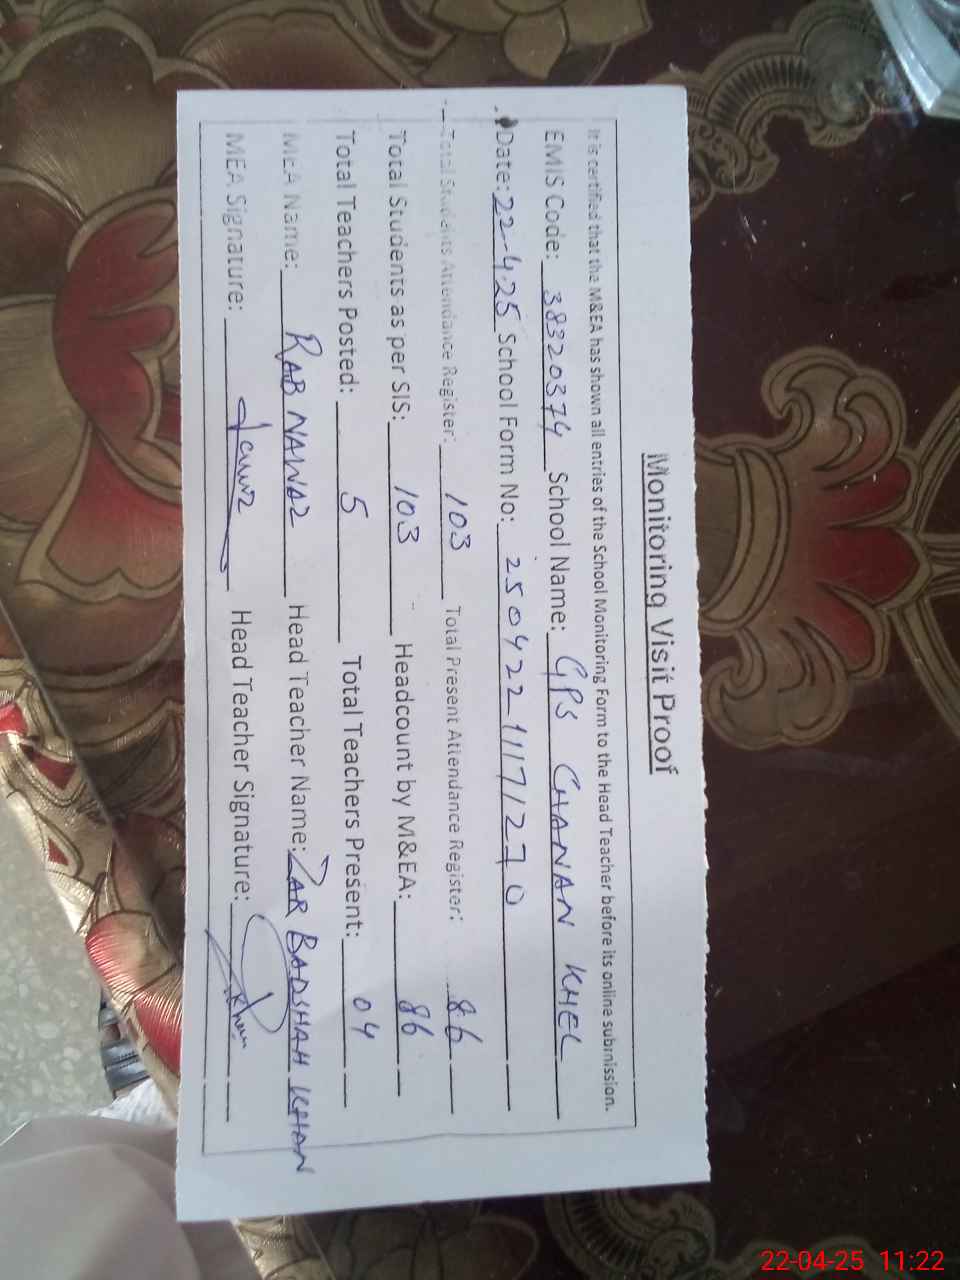 Monitoring Visit Proof
It is certified that the M&EA has shown all entries of the School Monitoring Form to the Head Teacher before its online submission.
EMIS Code: 38320374 School Name: GPS CHANAN KHEL
Date: 22-4-25 School Form No: 2504221117127 0
Total Students Attendance Register: 103 Total Present Attendance Register: 86
Total Students as per SIS: 103 Headcount by M&EA: 86
Total Teachers Posted: 5 Total Teachers Present: 04
MEA Name: RAB NAWAZ Head Teacher Name: ZAR BADSHAH KHAN
MEA Signature: Head Teacher Signature:
22-04-25 11:22